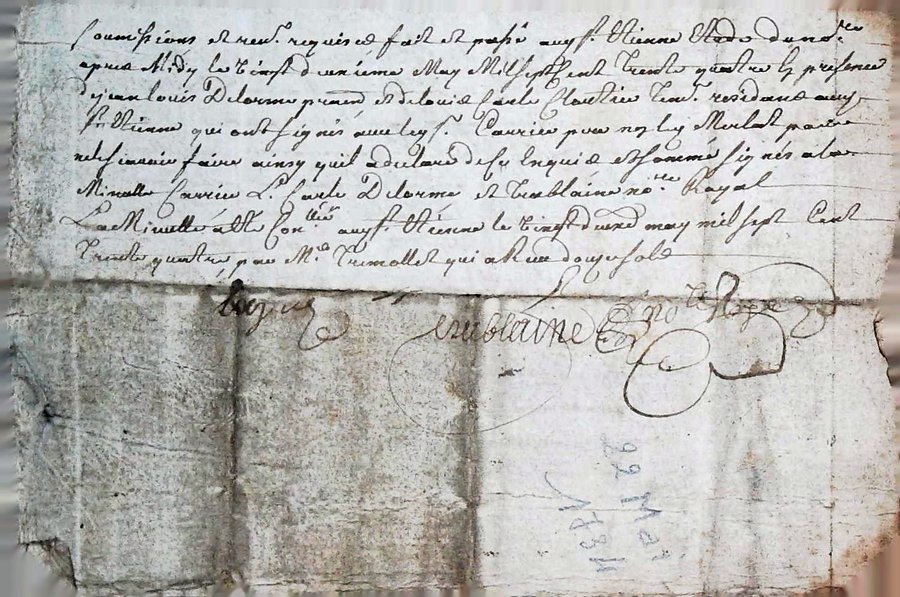 soumissions et ren.s requises fait et passé aud St. Etienne Etude du no.re
apres Midy le Vingt deuxieme May Mil sept Cent trente quatre En presence
de jean Louis Delorme praen et de louis Carle Cloutier Tem.s residans aud
St. Etienne qui ont signés avec led S. Carrier pour ne led Merlat pour
ne scavoir faire ainsy quil a declaré de ce Enquis et sommé signés a la
Minutte Carrier L. Carle Delorme et treblaine no.re Royal
La Minutte a Eté Con.llée aud St. Etienne le Vingt deux may mil sept Cent
Trente quatre par Mr. Tremollet qui a Receu douze sols
Exped
treblaine no.re Royal
22 Mai
1734